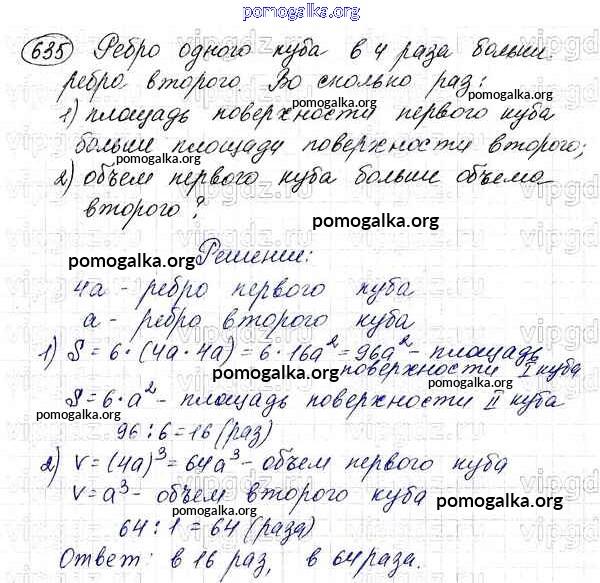 pomogalka.org
635 Ребро одного куба в 4 раза больше
ребра второго. Во сколько раз:
1) площадь поверхности первого куба
больше площади поверхности второго;
pomogalka.org
2) объем первого куба больше объема
второго?
pomogalka.org
Решение:
pomogalka.org
4а - ребро первого куба
а - ребро второго куба
1) S = 6·(4а·4а) = 6·16а² = 96а² - площадь
поверхности I куба
pomogalka.org
pomogalka.org
S = 6·а² - площадь поверхности II куба
pomogalka.org
96 : 6 = 16 (раз)
2) V = (4а)³ = 64а³ - объем первого куба
pomogalka.org
V = а³ - объем второго куба
pomogalka.org
64 : 1 = 64 (раза)
pomogalka.org
Ответ: в 16 раз, в 64 раза.